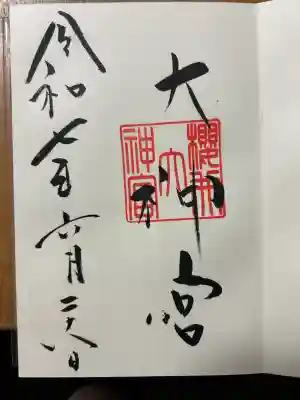 大神宮
櫻井
大
神宮
令和七年六月二十八日